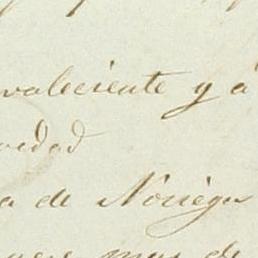 valeciente y á
vedad
a de Noriega
mas de